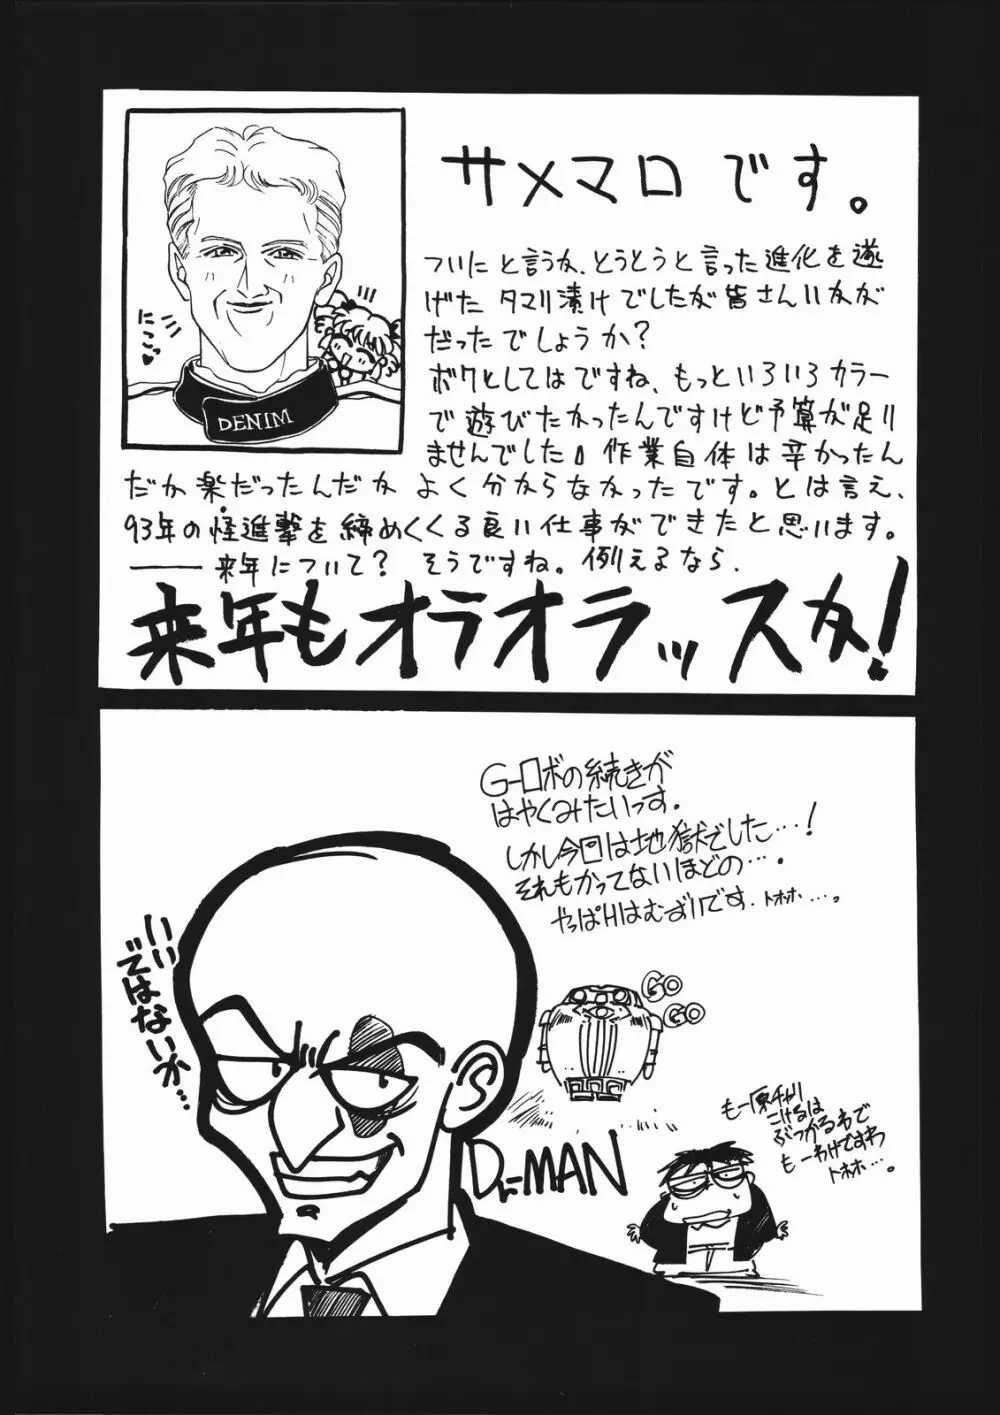 サメマロ です。
ついにと言うか、とうとうと言った進化を遂
げた タマリ漬けでしたが皆さんいかが
だったでしょうか？
ボクとしてはですね、もっといろいろカラー
で遊びたかったんですけど予算が足り
ませんでした。作業自体は辛かったん
だか楽だったんだか よく分からなかったです。とは言え、
93年の怪進撃を締めくくる良い仕事ができたと思います。
── 来年について？ そうですね。例えるなら、
来年もオラオラッスよ！
にこっ♥
DENIM
G-ロボの続きが
はやくみたいっす。
しかし今回は地獄でした…！
それもかってないほどの…。
やっぱHはむずいです。トホホ…。
いい
ではないか…
GO
GO
Dr-MAN
もー原チャリ
こけるは
ぶつかるわで
もーわけですわ
トホホ…。